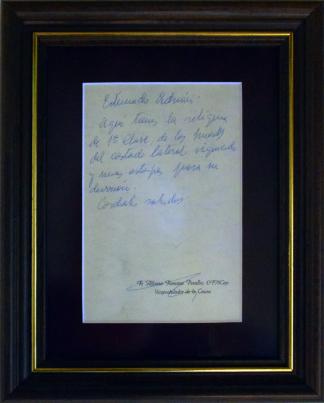 Estimado Adrián:
Aquí tienes la reliquia
de 1ª clase, de los huesos
del costado lateral izquierdo
y unas estampas para su
difusión.
Cordiales saludos.
Fr. Alfonso Ramírez Peralbo, OFMCap
Vicepostulador de la Causa